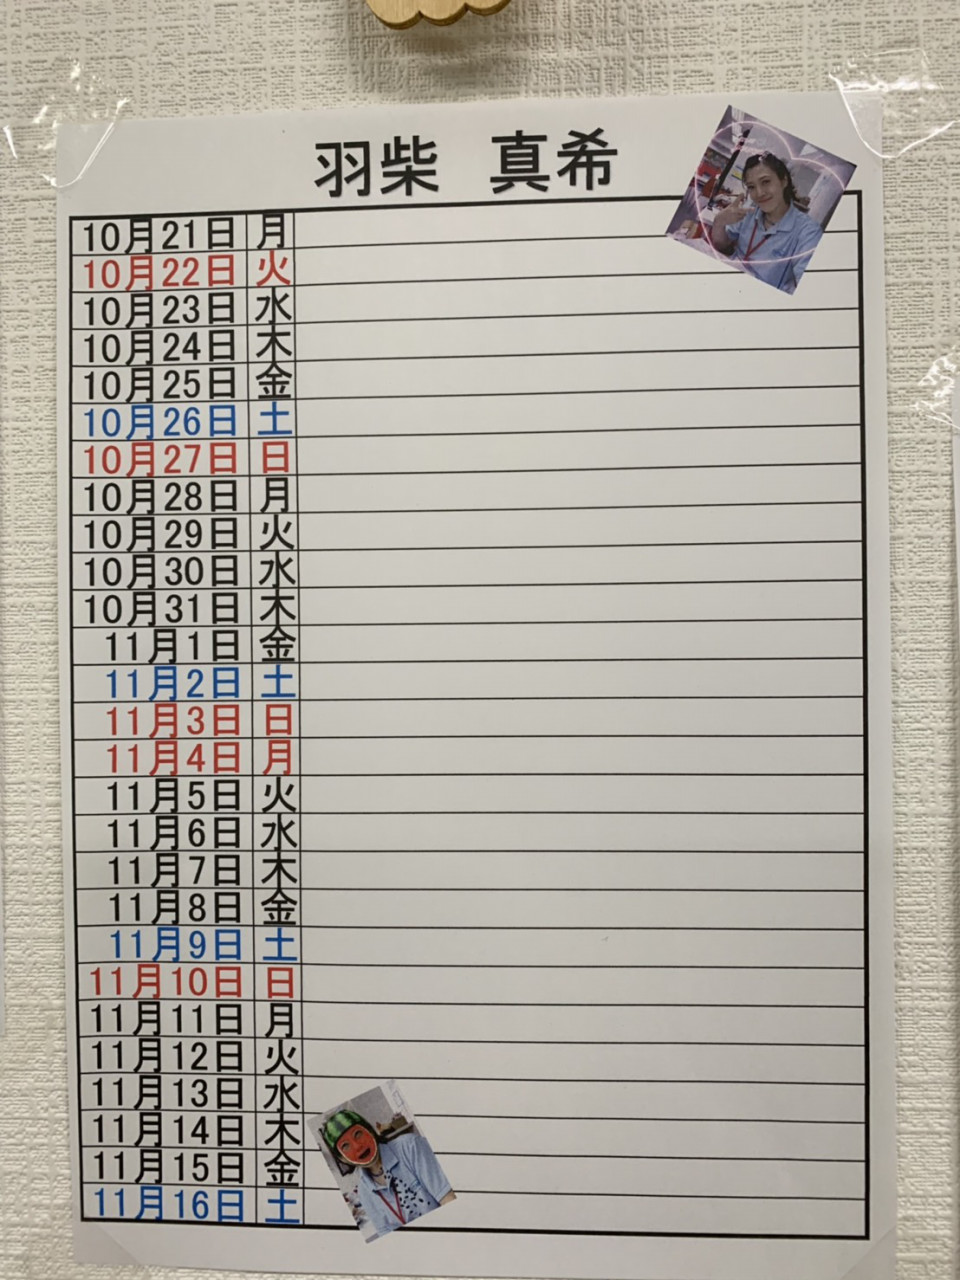 羽柴 真希
10月21日 月
10月22日 火
10月23日 水
10月24日 木
10月25日 金
10月26日 土
10月27日 日
10月28日 月
10月29日 火
10月30日 水
10月31日 木
11月1日 金
11月2日 土
11月3日 日
11月4日 月
11月5日 火
11月6日 水
11月7日 木
11月8日 金
11月9日 土
11月10日 日
11月11日 月
11月12日 火
11月13日 水
11月14日 木
11月15日 金
11月16日 土